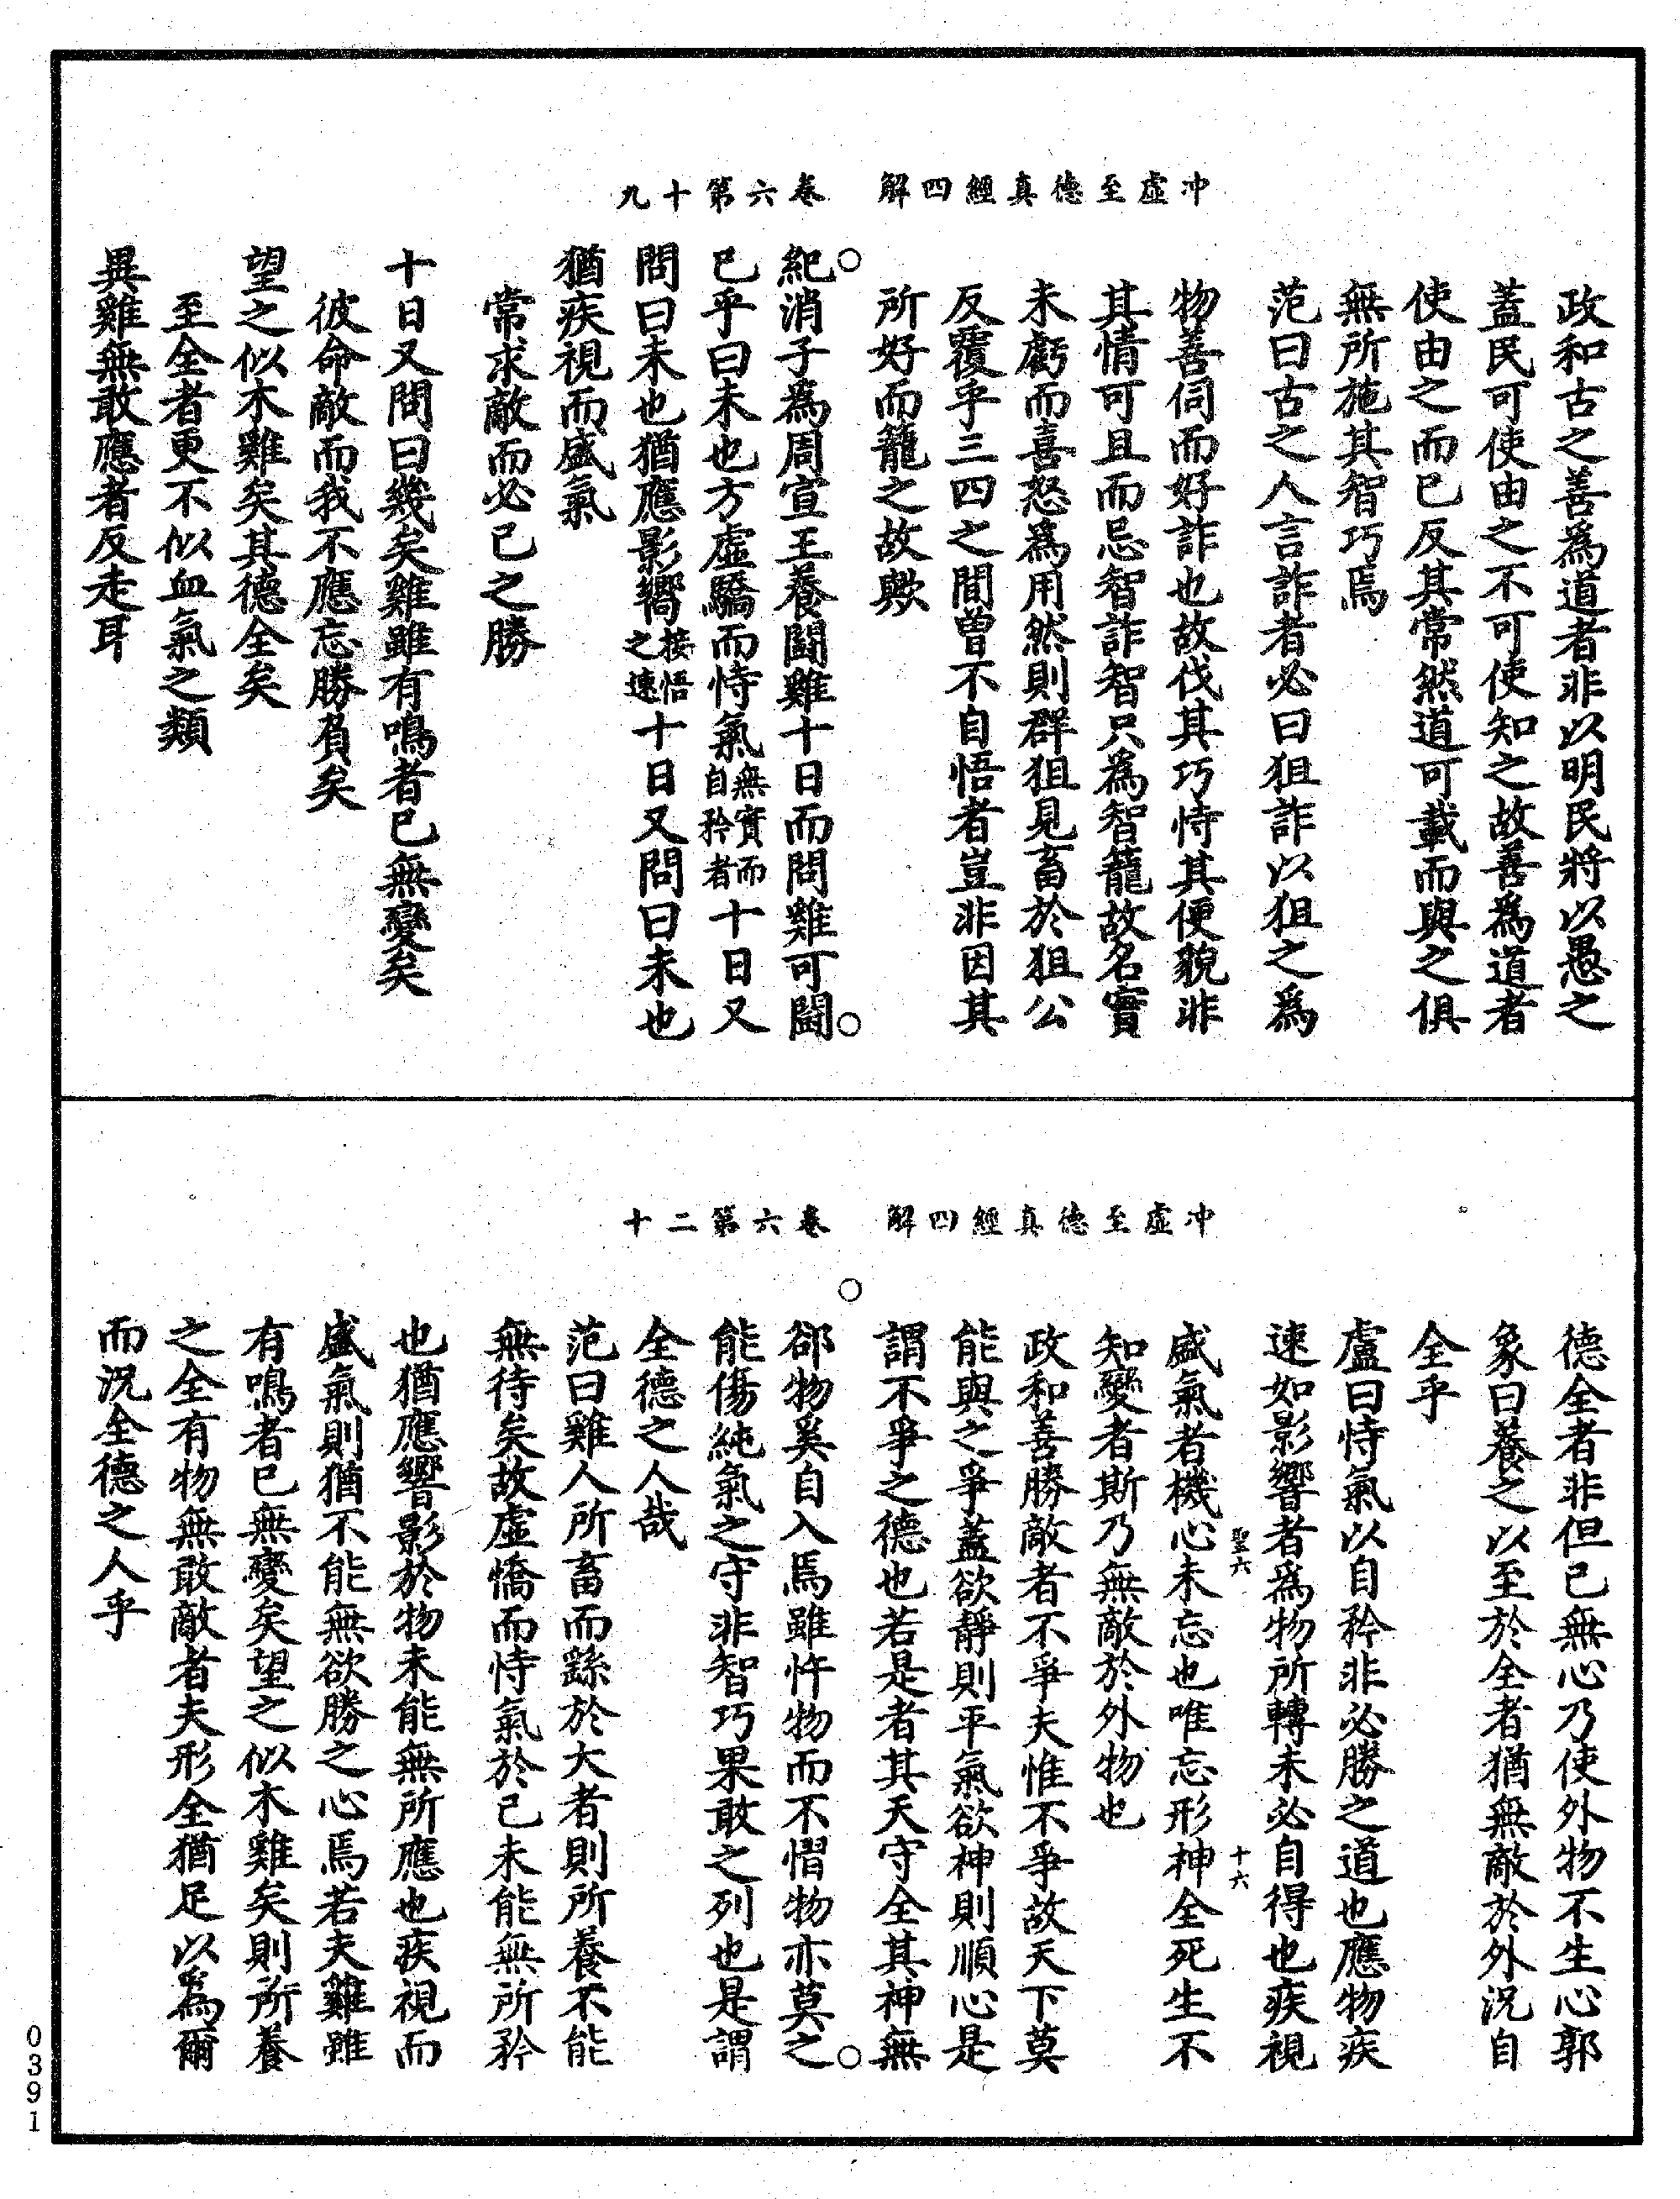 冲虛至德真經四解　卷六第十九
政和古之善為道者非以明民將以愚之
蓋民可使由之不可使知之故善為道者
使由之而已反其常然道可載而與之俱
無所施其智巧焉
范曰古之人言詐者必曰狙詐以狙之為
物善伺而好詐也故伐其巧恃其便貌非
其情可且而忌智詐智只為智籠故名實
未虧而喜怒為用然則群狙見畜於狙公
反覆乎三四之間曾不自悟者豈非因其
所好而籠之故歟
○紀消子為周宣王養鬪雞十日而問雞可鬪○
已乎曰未也方虛驕而恃氣無實而自矜者十日又
問曰未也猶應影嚮接悟之速十日又問曰未也
猶疾視而盛氣
常求敵而必已之勝
十日又問曰幾矣雞雖有鳴者已無變矣
彼命敵而我不應忘勝負矣
望之似木雞矣其德全矣
至全者更不似血氣之類
異雞無敢應者反走耳
冲虛至德真經四解　卷六第二十
德全者非但已無心乃使外物不生心郭
象曰養之以至於全者猶無敵於外況自
全乎
盧曰恃氣以自矜非必勝之道也應物疾
速如影響者為物所轉未必自得也疾視
聖六　十六
盛氣者機心未忘也唯忘形神全死生不
知變者斯乃無敵於外物也
政和善勝敵者不爭夫惟不爭故天下莫
能與之爭蓋欲靜則平氣欲神則順心是
謂不爭之德也若是者其天守全其神無
○郤物奚自入焉雖忤物而不慴物亦莫之○
能傷純氣之守非智巧果敢之列也是謂
全德之人哉
范曰雞人所畜而繇於大者則所養不能
無待矣故虛憍而恃氣於已未能無所矜
也猶應響影於物未能無所應也疾視而
盛氣則猶不能無欲勝之心焉若夫雞雖
有鳴者已無變矣望之似木雞矣則所養
之全有物無敢敵者夫形全猶足以為爾
而況全德之人乎
0391